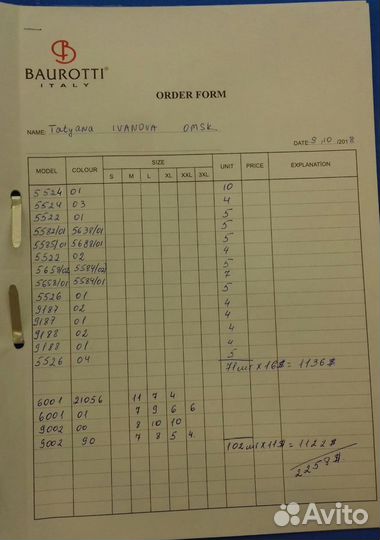 BAUROTTI®
ITALY
ORDER FORM
NAME: Tatyana IVANOVA OMSK.
DATE 9.10./2018
MODEL COLOUR SIZE UNIT PRICE EXPLANATION
S M L XL XXL 3XL
5524 01 10
5524 03 4
5522 01 5
5582/01 5638/01 5
5585/01 5688/01 5
5522 02 4
5658/02 5584/02 5
5658/01 5584/01 7
5526 01 5
9187 02 4
9187 01 4
9188 02 4
9188 01 4
5526 04 5
71шт x 16$ = 1136$
6001 21056 11 7 4
6001 01 7 9 6 6
9002 00 8 10 10
9002 90 7 8 5 4
102шт x 11$ = 1122$
2258$
Avito